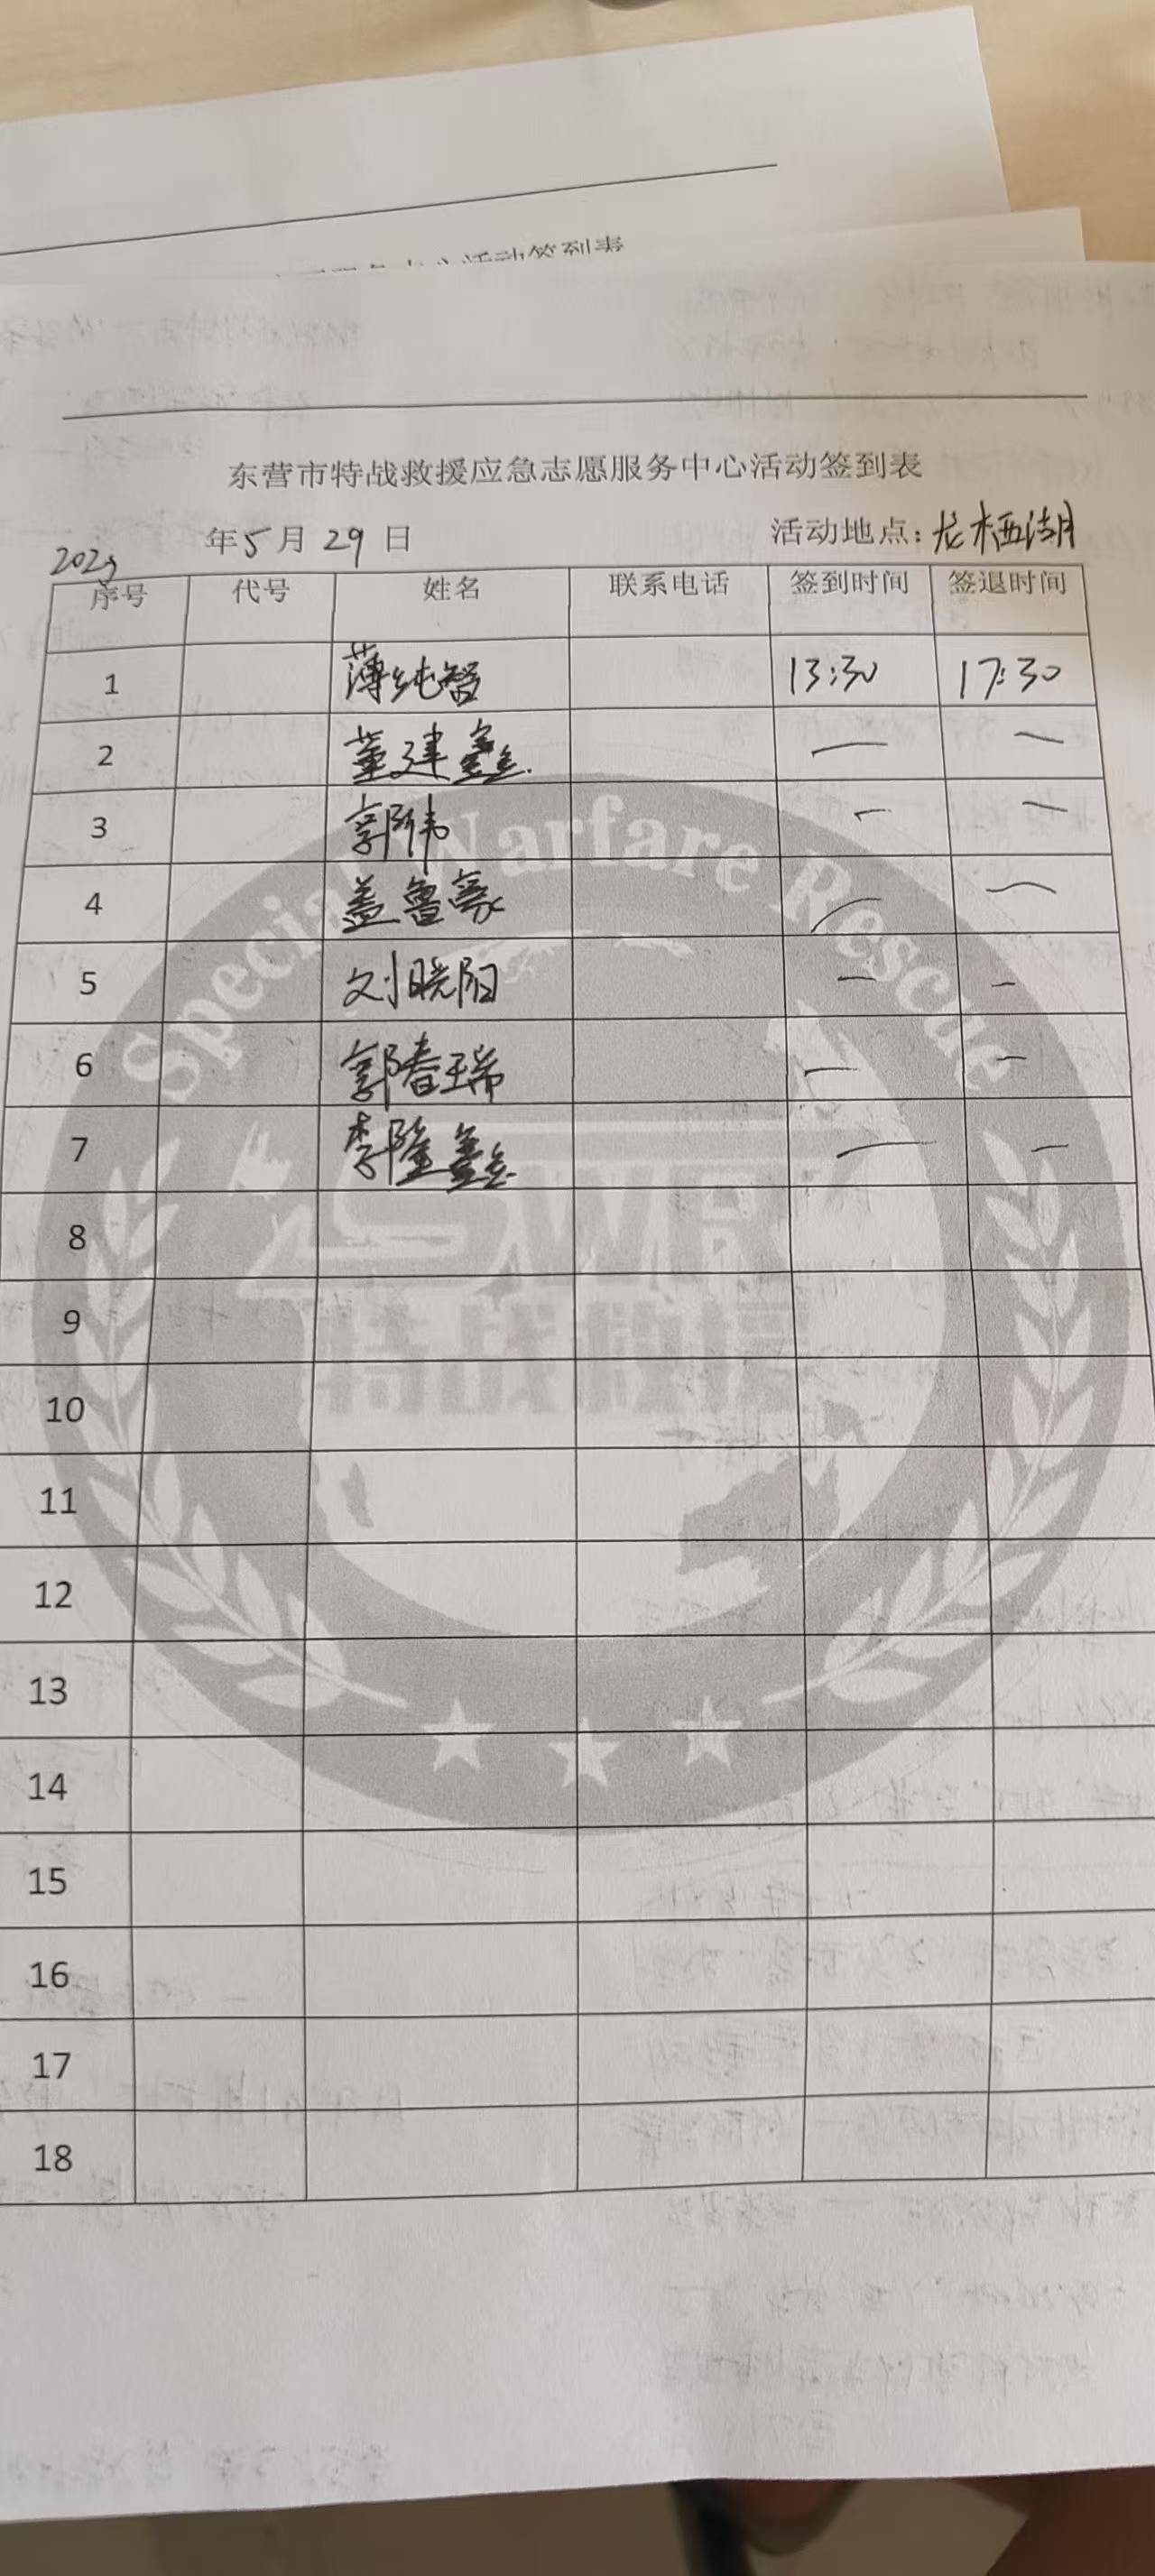 东营市特战救援应急志愿服务中心活动签到表
2025 年5月29日 活动地点:龙栖湖
序号 代号 姓名 联系电话 签到时间 签退时间
1 薄纯智 13:30 17:30
2 董建鑫 — —
3 郭伟 — —
4 盖鲁豪 — —
5 刘晓阳 — —
6 郭春瑞 — —
7 李隆鑫 — —
8
9
10
11
12
13
14
15
16
17
18
Special Warfare Rescue
SWR
特战救援